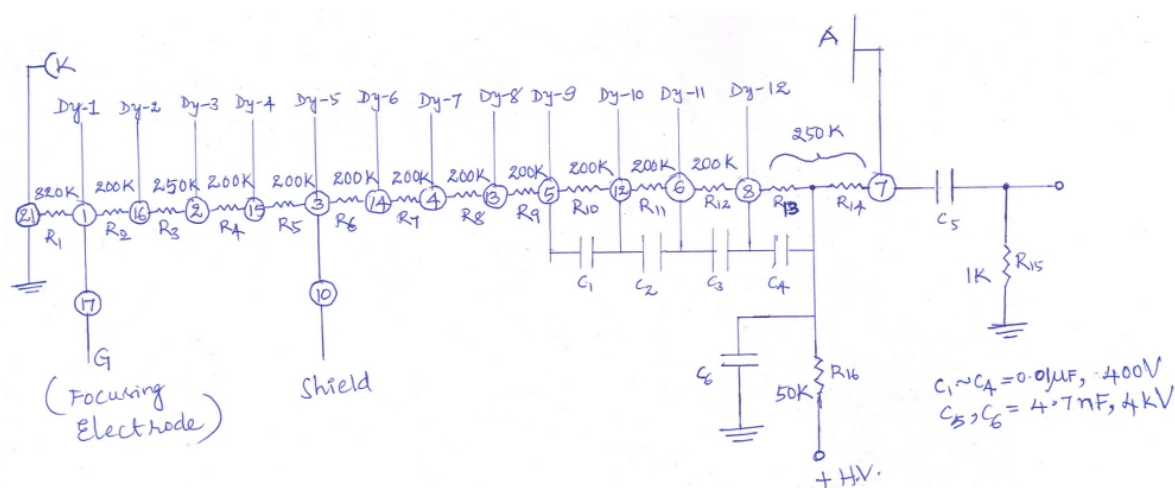 A
K
Dy-1 Dy-2 Dy-3 Dy-4 Dy-5 Dy-6 Dy-7 Dy-8 Dy-9 Dy-10 Dy-11 Dy-12
250K
820K 200K 250K 200K 200K 200K 200K 200K 200K 200K 200K 200K
21 1 16 2 15 3 14 4 13 5 12 6 8 7
R1 R2 R3 R4 R5 R6 R7 R8 R9 R10 R11 R12 R13 R14
C5
C1 C2 C3 C4
1K R15
17
10
G
(Focusing
Electrode)
Shield
C6
50K R16
+ H.V.
C1~C4=0.01μF, 400V
C5, C6 = 4.7nF, 4kV